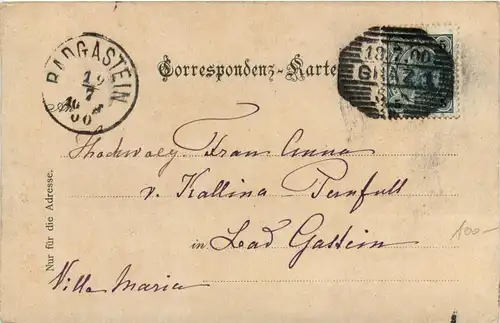 BADGASTEIN
19
7
00
18.7.00
GRAZ 1
Correspondenz-Karte
An
Frau Anna
v. Kallina
in Bad Gastein
Villa Maria
Nur für die Adresse.
100-